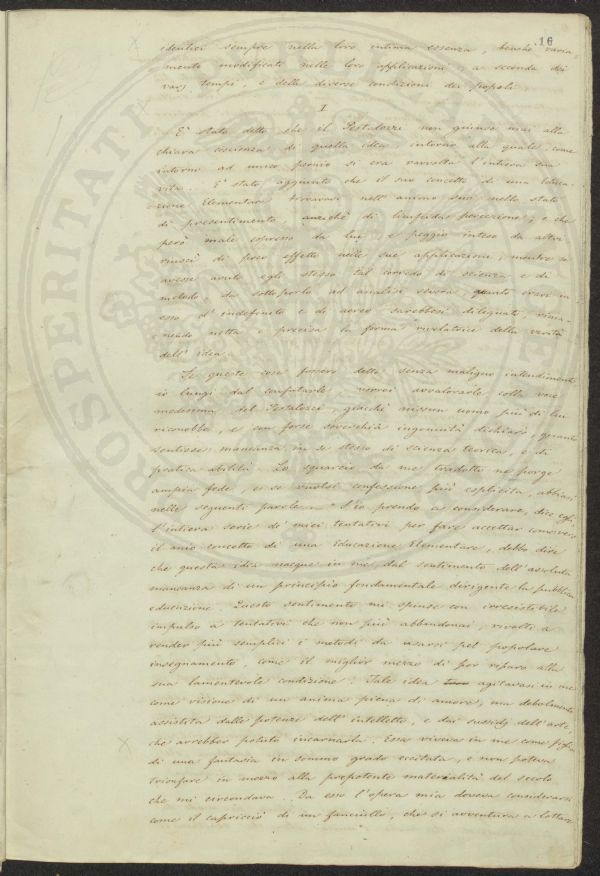 16
identici sempre nella loro intima essenza, benchè varia-
mente modificati nelle loro applicazioni, a seconda dei
varj tempi, e delle diverse condizioni dei popoli.
I
E' stato detto che il Pestalozzi non giunse mai alla
chiara coscienza di quella idea intorno alla quale come
intorno ad unico pernio si era ravvolta l'intiera sua
vita. E' stato aggiunto che il suo concetto di una Educa-
zione Elementare trovavasi nell'animo suo nello stato
di presentimento, anzichè di limpida percezione; e che
però male espresso da lui, e peggio inteso da altri
riuscì di poco effetto nelle sue applicazioni; mentre se
avesse avuto egli stesso tal corredo di scienza e di
metodo, da sottoporlo ad analisi severa, quanto eravi in
esso d'indefinito e di aereo sarebbesi dileguato, rima-
nendo netta e precisa la forma rivelatrice della verità
dell'idea.
Se queste cose fossero dette senza maligno intendimento
io lungi dal confutarle, vorrei avvalorarle colla voce
medesima del Pestalozzi, giacchè nissun uomo più di lui
riconobbe, e con forse soverchia ingenuità dichiarò, quanto
sentisse mancanza in se stesso di scienza teorica, e di
pratica abilità. Lo squarcio da me tradotto ne porge
ampia fede, e se vuolsi confessione più esplicita, abbiasi
nelle seguenti parole. "S'io prendo a considerare, dice egli,
l'intiera serie de' miei tentativi per fare accettar
il mio concetto di una Educazione Elementare, debbo dire
che questa idea nacque in me dal sentimento dell'assoluta
mancanza di un principio fondamentale dirigente la pubblica
educazione. Questo sentimento mi spinse con irresistibile
impulso a tentativi che non più abbandonai, rivolti a
render più semplici i metodi da usarsi pel popolare
insegnamento, come il miglior mezzo di por riparo alla
sua lamentevole condizione. Tale idea agitavasi in me
come visione di un anima piena di amore, ma debolmente
assistita dalle potenze dell'intelletto, e dai sussidj dell'arte,
che avrebber potuto incarnarla. Essa viveva in me come figlia
di una fantasia in sommo grado eccitata, e non poteva
trionfare in mezzo alla prepotente materialità del secolo
che mi circondava. Da esso l'opera mia doveva considerarsi
come il capriccio di un fanciullo, che si avventura a lottare